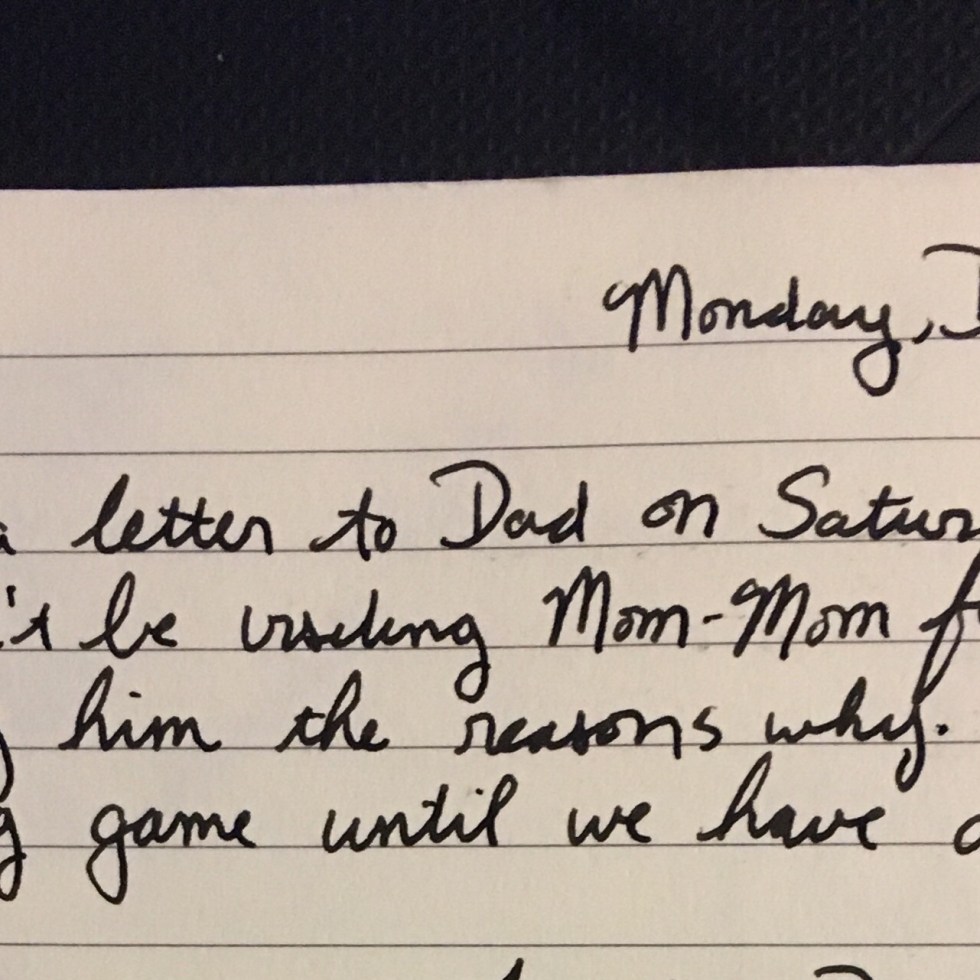 Monday,
a letter to Dad on Satur
't be visiting Mom-Mom f
him the reasons why.
g game until we have a